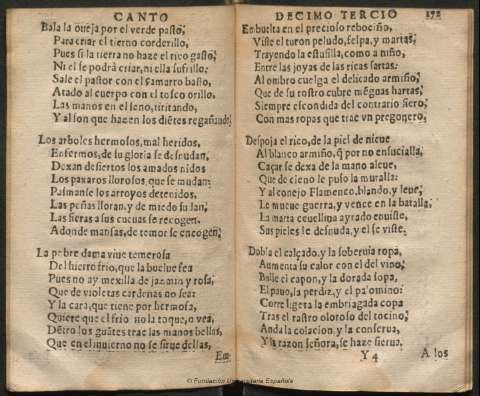 CANTO
Bala la oueja por el verde pasto,
Para criar el tierno corderillo,
Pues si la tierra no haze el rico gasto,
Ni el se podrá criar, ni ella sufrillo:
Sale el pastor con el çamarro basto,
Atado al cuerpo con el tosco orillo,
Las manos en el seno, tiritando,
Y al son que hazen los diētes regañando.
Los arboles hermosos, mal heridos,
Enfermos, de su gloria se desnudan,
Dexan desiertos los amados nidos
Los paxaros llorosos, que se mudan:
Pasmanse los arroyos detenidos,
Las peñas lloran, y de miedo sudan,
Las fieras a sus cueuas se recogen,
Adonde mansas, de temor se encogen.
La pobre dama viue temerosa
Del hierro frio, que la buelue fea
Pues no ay mexilla de jazmin y rosa,
Que de violetas cardenas no sea:
Y la cara, que tiene por hermosa,
Quiere que el frio no la toque, o vea,
Dētro los guātes trae las manos bellas,
Que en el inuierno no se sirue dellas,
Em-
DECIMO TERCIO
Embuelta en el precioso rebociño,
Viste el turon peludo, felpa, y martas,
Trayendo la estufilla, como a niño,
Entre las joyas de las ricas sartas:
Al ombro cuelga el delicado armiño,
Que de su rostro cubre mēguas hartas,
Siempre escondida del contrario fiero,
Con mas ropas que trae vn pregonero,
Despoja el rico, de la piel de nieue
Al blanco armiño, q̃ por no ensucialla,
Caçar se dexa de la mano aleue,
Que de cieno le puso la muralla:
Y al conejo Flamenco, blando, y leue,
Le mueue guerra, y vence en la batalla,
La marta ceuellina ayrado enuiste,
Sus pieles le desnuda, y el se viste.
Dobla el calçado, y la soberuia ropa,
Aumenta su calor con el del vino,
Bulle el capon, y la dorada sopa,
El pauo, la perdiz, y el palomino:
Corre ligera la embriagada copa
Tras el rastro oloroso del tocino,
Anda la colacion, y la conserua,
Y la razon señora, se haze sierua,
Y 4
A los
© Fundación Universitaria Española